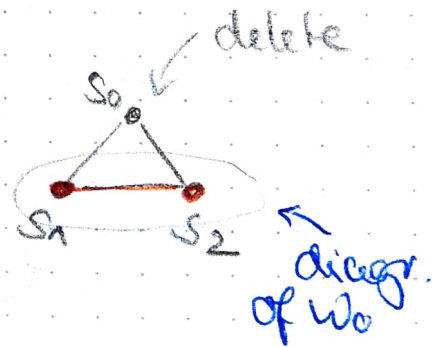 delete
S0
S1 S2
diagr.
of W0